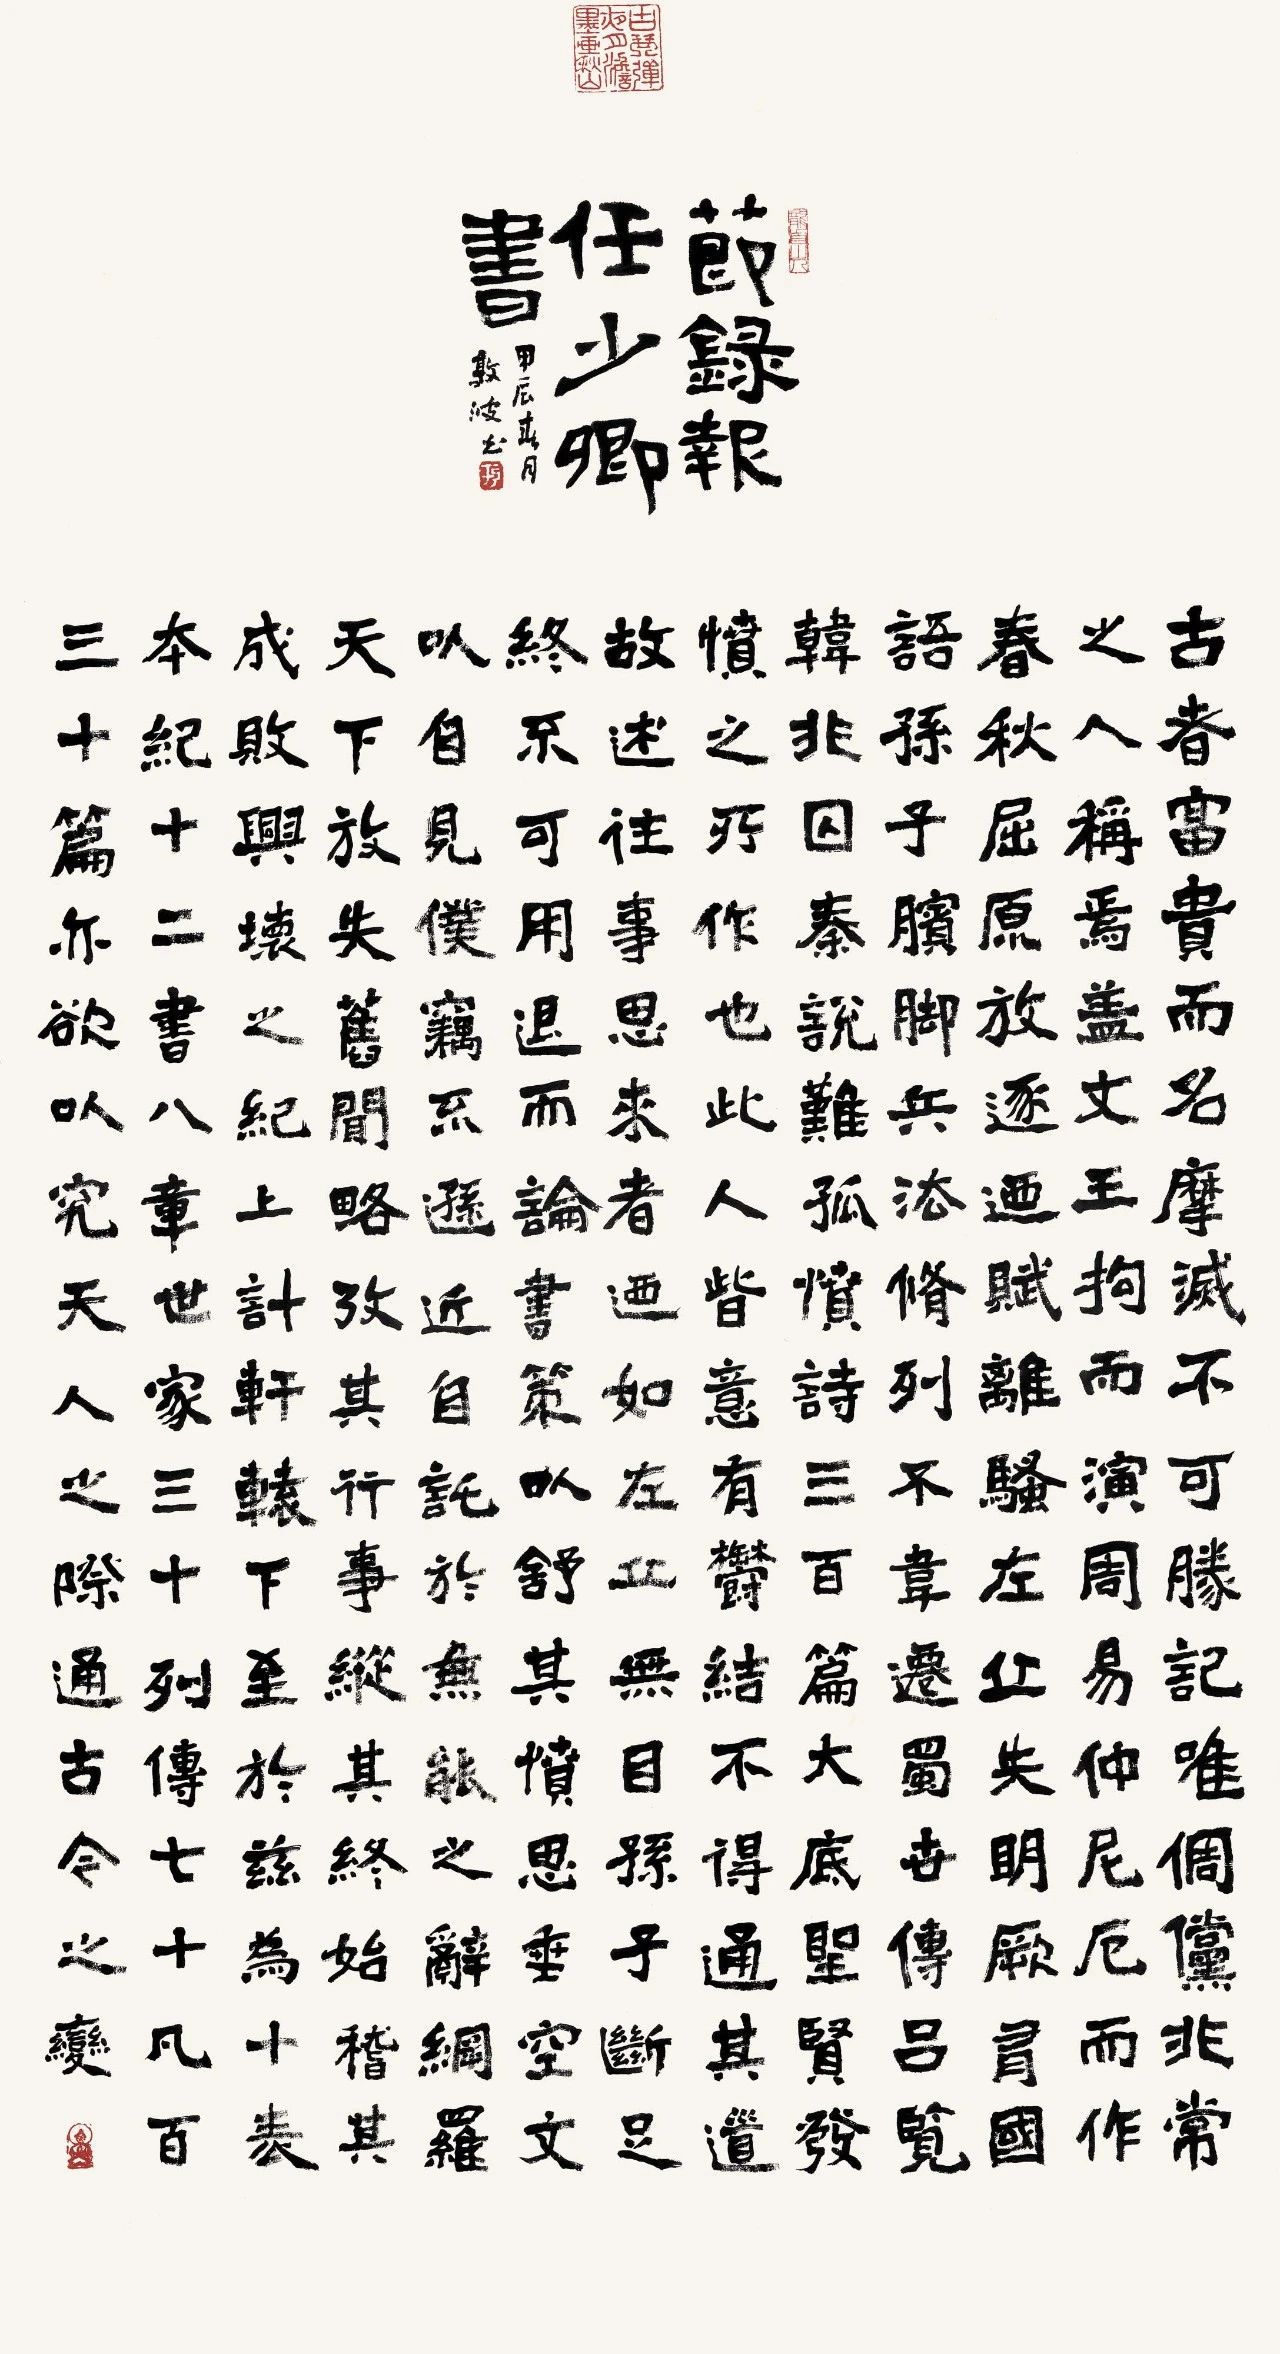 古琴彈夜月濃墨畫秋山
節錄報
任少卿
書
甲辰春月
敦波書
古者富貴而名摩滅不可勝記唯倜儻非常
之人稱焉蓋文王拘而演周易仲尼厄而作
春秋屈原放逐迺賦離騷左丘失明厥有國
語孫子臏脚兵法脩列不韋遷蜀世傳呂覽
韓非囚秦說難孤憤詩三百篇大底聖賢發
憤之所作也此人皆意有鬱結不得通其道
故述往事思來者迺如左丘無目孫子斷足
終不可用退而論書策以舒其憤思垂空文
以自見僕竊不遜近自託於無能之辭網羅
天下放失舊聞略攷其行事縱其終始稽其
成敗興壞之紀上計軒轅下至於茲為十表
本紀十二書八章世家三十列傳七十凡百
三十篇亦欲以究天人之際通古今之變